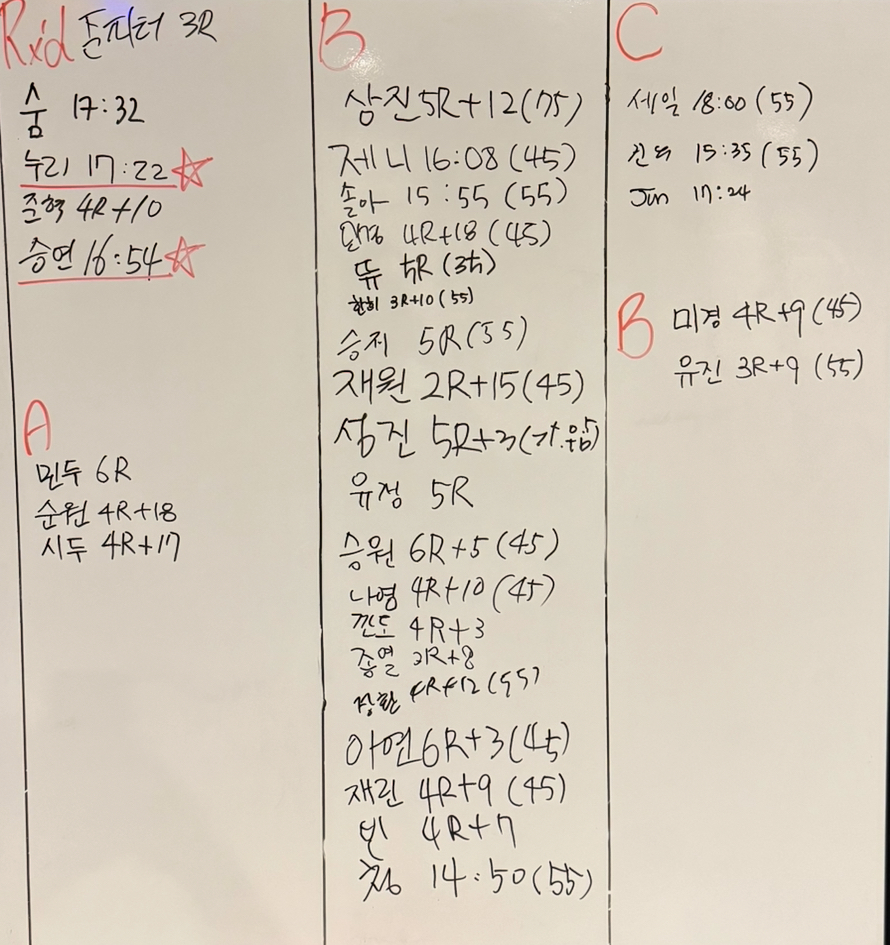 Rx'd 준피터 3R
숨 17:32
누리 17:22
준혁 4R+10
승연 16:54
A
민두 6R
순원 4R+18
시두 4R+17
B
삼진 5R+12(75)
제니 16:08 (45)
솔아 15:55 (55)
4R+18 (45)
뚜 5R (35)
한희 3R+10 (55)
승지 5R (55)
재원 2R+15 (45)
성진 5R+3
유정 5R
승원 6R+5 (45)
나영 4R+10 (45)
깐도 4R+3
종열 2R+8
4R+12 (55)
아연 6R+3 (45)
재린 4R+9 (45)
빈 4R+7
14:50 (55)
C
세일 18:00 (55)
15:35 (55)
Jun 17:24
B
미경 4R+9 (45)
유진 3R+9 (55)